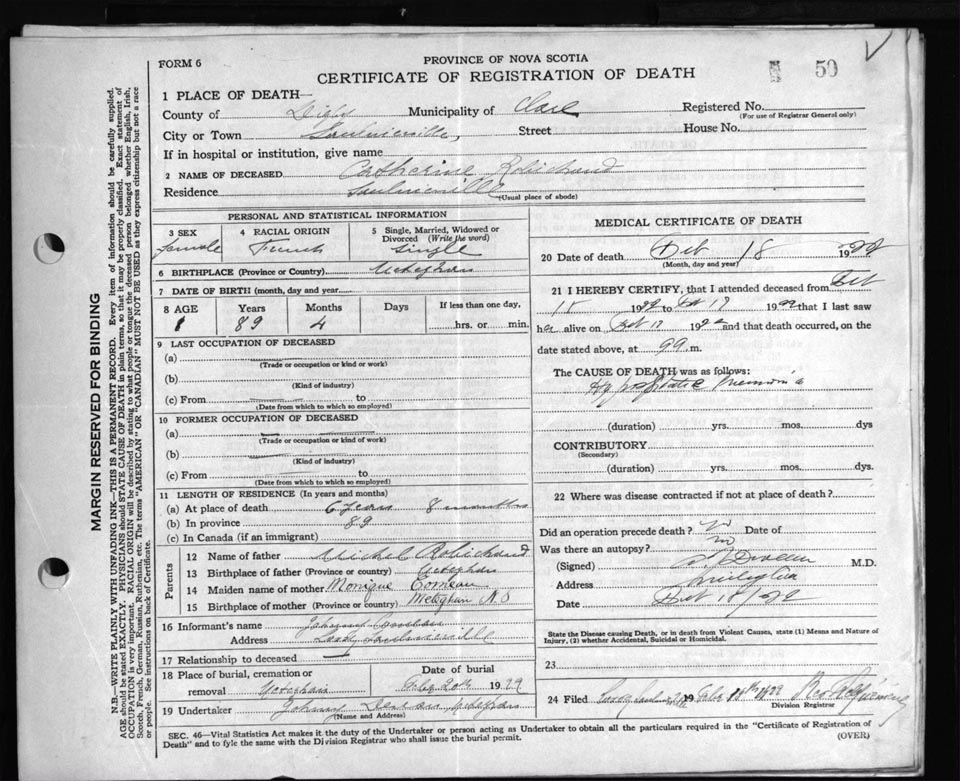 FORM 6
PROVINCE OF NOVA SCOTIA
CERTIFICATE OF REGISTRATION OF DEATH
50
1 PLACE OF DEATH—
County of Digby Municipality of Clare Registered No.
(For use of Registrar General only)
City or Town Saulnierville, Street House No.
If in hospital or institution, give name
2 NAME OF DECEASED Catherine Robichaud
Residence Saulnierville
(Usual place of abode)
PERSONAL AND STATISTICAL INFORMATION
3 SEX 4 RACIAL ORIGIN 5 Single, Married, Widowed or Divorced (Write the word)
female French Single
6 BIRTHPLACE (Province or Country) Meteghan
7 DATE OF BIRTH (month, day and year)
8 AGE Years Months Days If less than one day,
89 4 hrs. or min.
9 LAST OCCUPATION OF DECEASED
(a)
(Trade or occupation or kind of work)
(b)
(Kind of industry)
(c) From to
(Date from which to which so employed)
10 FORMER OCCUPATION OF DECEASED
(a)
(Trade or occupation or kind of work)
(b)
(Kind of industry)
(c) From to
(Date from which to which so employed)
11 LENGTH OF RESIDENCE (In years and months)
(a) At place of death 6 years 8 months
(b) In province 89
(c) In Canada (if an immigrant)
Parents
12 Name of father Michel Robichaud
13 Birthplace of father (Province or country) Meteghan
14 Maiden name of mother Monique Comeau
15 Birthplace of mother (Province or country) Meteghan N.S
16 Informant's name Johnny
Address Saulnierville
17 Relationship to deceased
18 Place of burial, cremation or removal Meteghan Date of burial Feb 20th 1929
19 Undertaker Johnny Meteghan
(Name and Address)
MEDICAL CERTIFICATE OF DEATH
20 Date of death Feb 18 19
(Month, day and year)
21 I HEREBY CERTIFY, that I attended deceased from Feb
15 19 to Feb 17 19 that I last saw
her alive on Feb 17 19 and that death occurred, on the
date stated above, at m.
The CAUSE OF DEATH was as follows:
Hypostatic Pneumonia
(duration) yrs. mos. dys
CONTRIBUTORY
(Secondary)
(duration) yrs. mos. dys.
22 Where was disease contracted if not at place of death?
Did an operation precede death? no Date of
Was there an autopsy? no
(Signed) M.D.
Address
Date Feb 18/
State the Disease causing Death, or in death from Violent Causes, state (1) Means and Nature of
Injury, (2) whether Accidental, Suicidal or Homicidal.
23
24 Filed
Division Registrar
SEC. 46—Vital Statistics Act makes it the duty of the Undertaker or person acting as Undertaker to obtain all the particulars required in the "Certificate of Registration of
Death" and to fyle the same with the Division Registrar who shall issue the burial permit. (OVER)
MARGIN RESERVED FOR BINDING
N.B.—WRITE PLAINLY WITH UNFADING INK—THIS IS A PERMANENT RECORD. Every item of information should be carefully supplied.
AGE should be stated EXACTLY. PHYSICIANS should STATE CAUSE OF DEATH in plain terms, so that it may be properly classified. Exact statement of
OCCUPATION is very important. RACIAL ORIGIN will be described by stating to what people or tongue the deceased person belonged whether English, Irish,
Scotch, French, German, Russian, Ruthenian, etc. The terms "AMERICAN" OR "CANADIAN" MUST NOT BE USED as they express citizenship but not a race
or people. See instructions on back of Certificate.